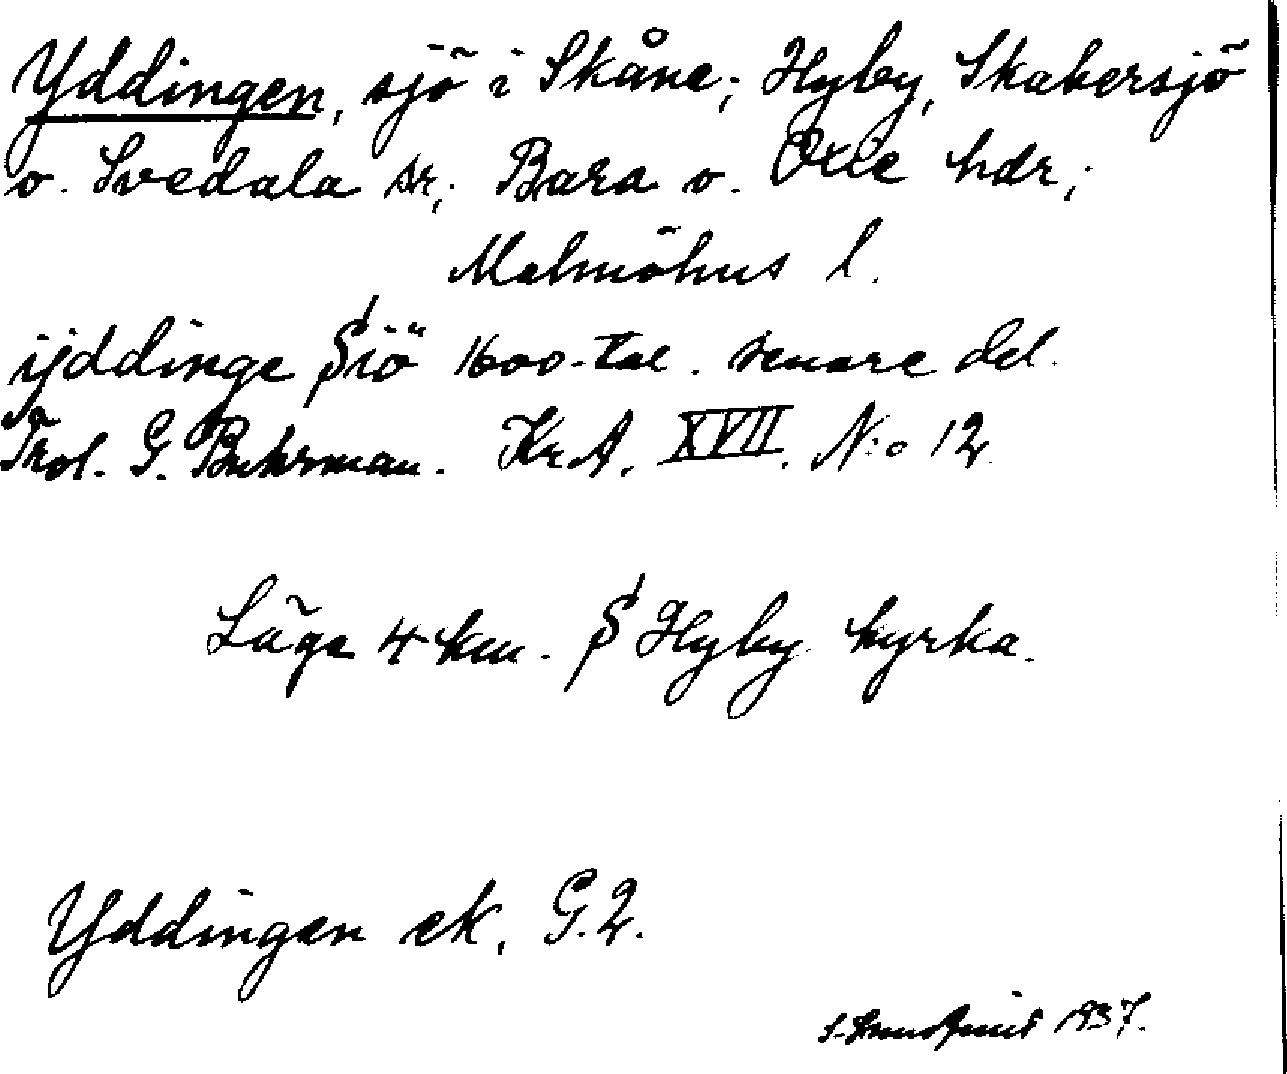 Yddingen, sjö i Skåne; Hyby, Skabersjö
o. Svedala sr; Bara o. Oxie hdr;
Malmöhus l.
ijddinge Siö 1600-tal. senare del.
Trol. G. Buhrman. KrA. XVII. N:o 12
Läge 4 km. S Hyby kyrka.
Yddingen ek. G.2.
1937.